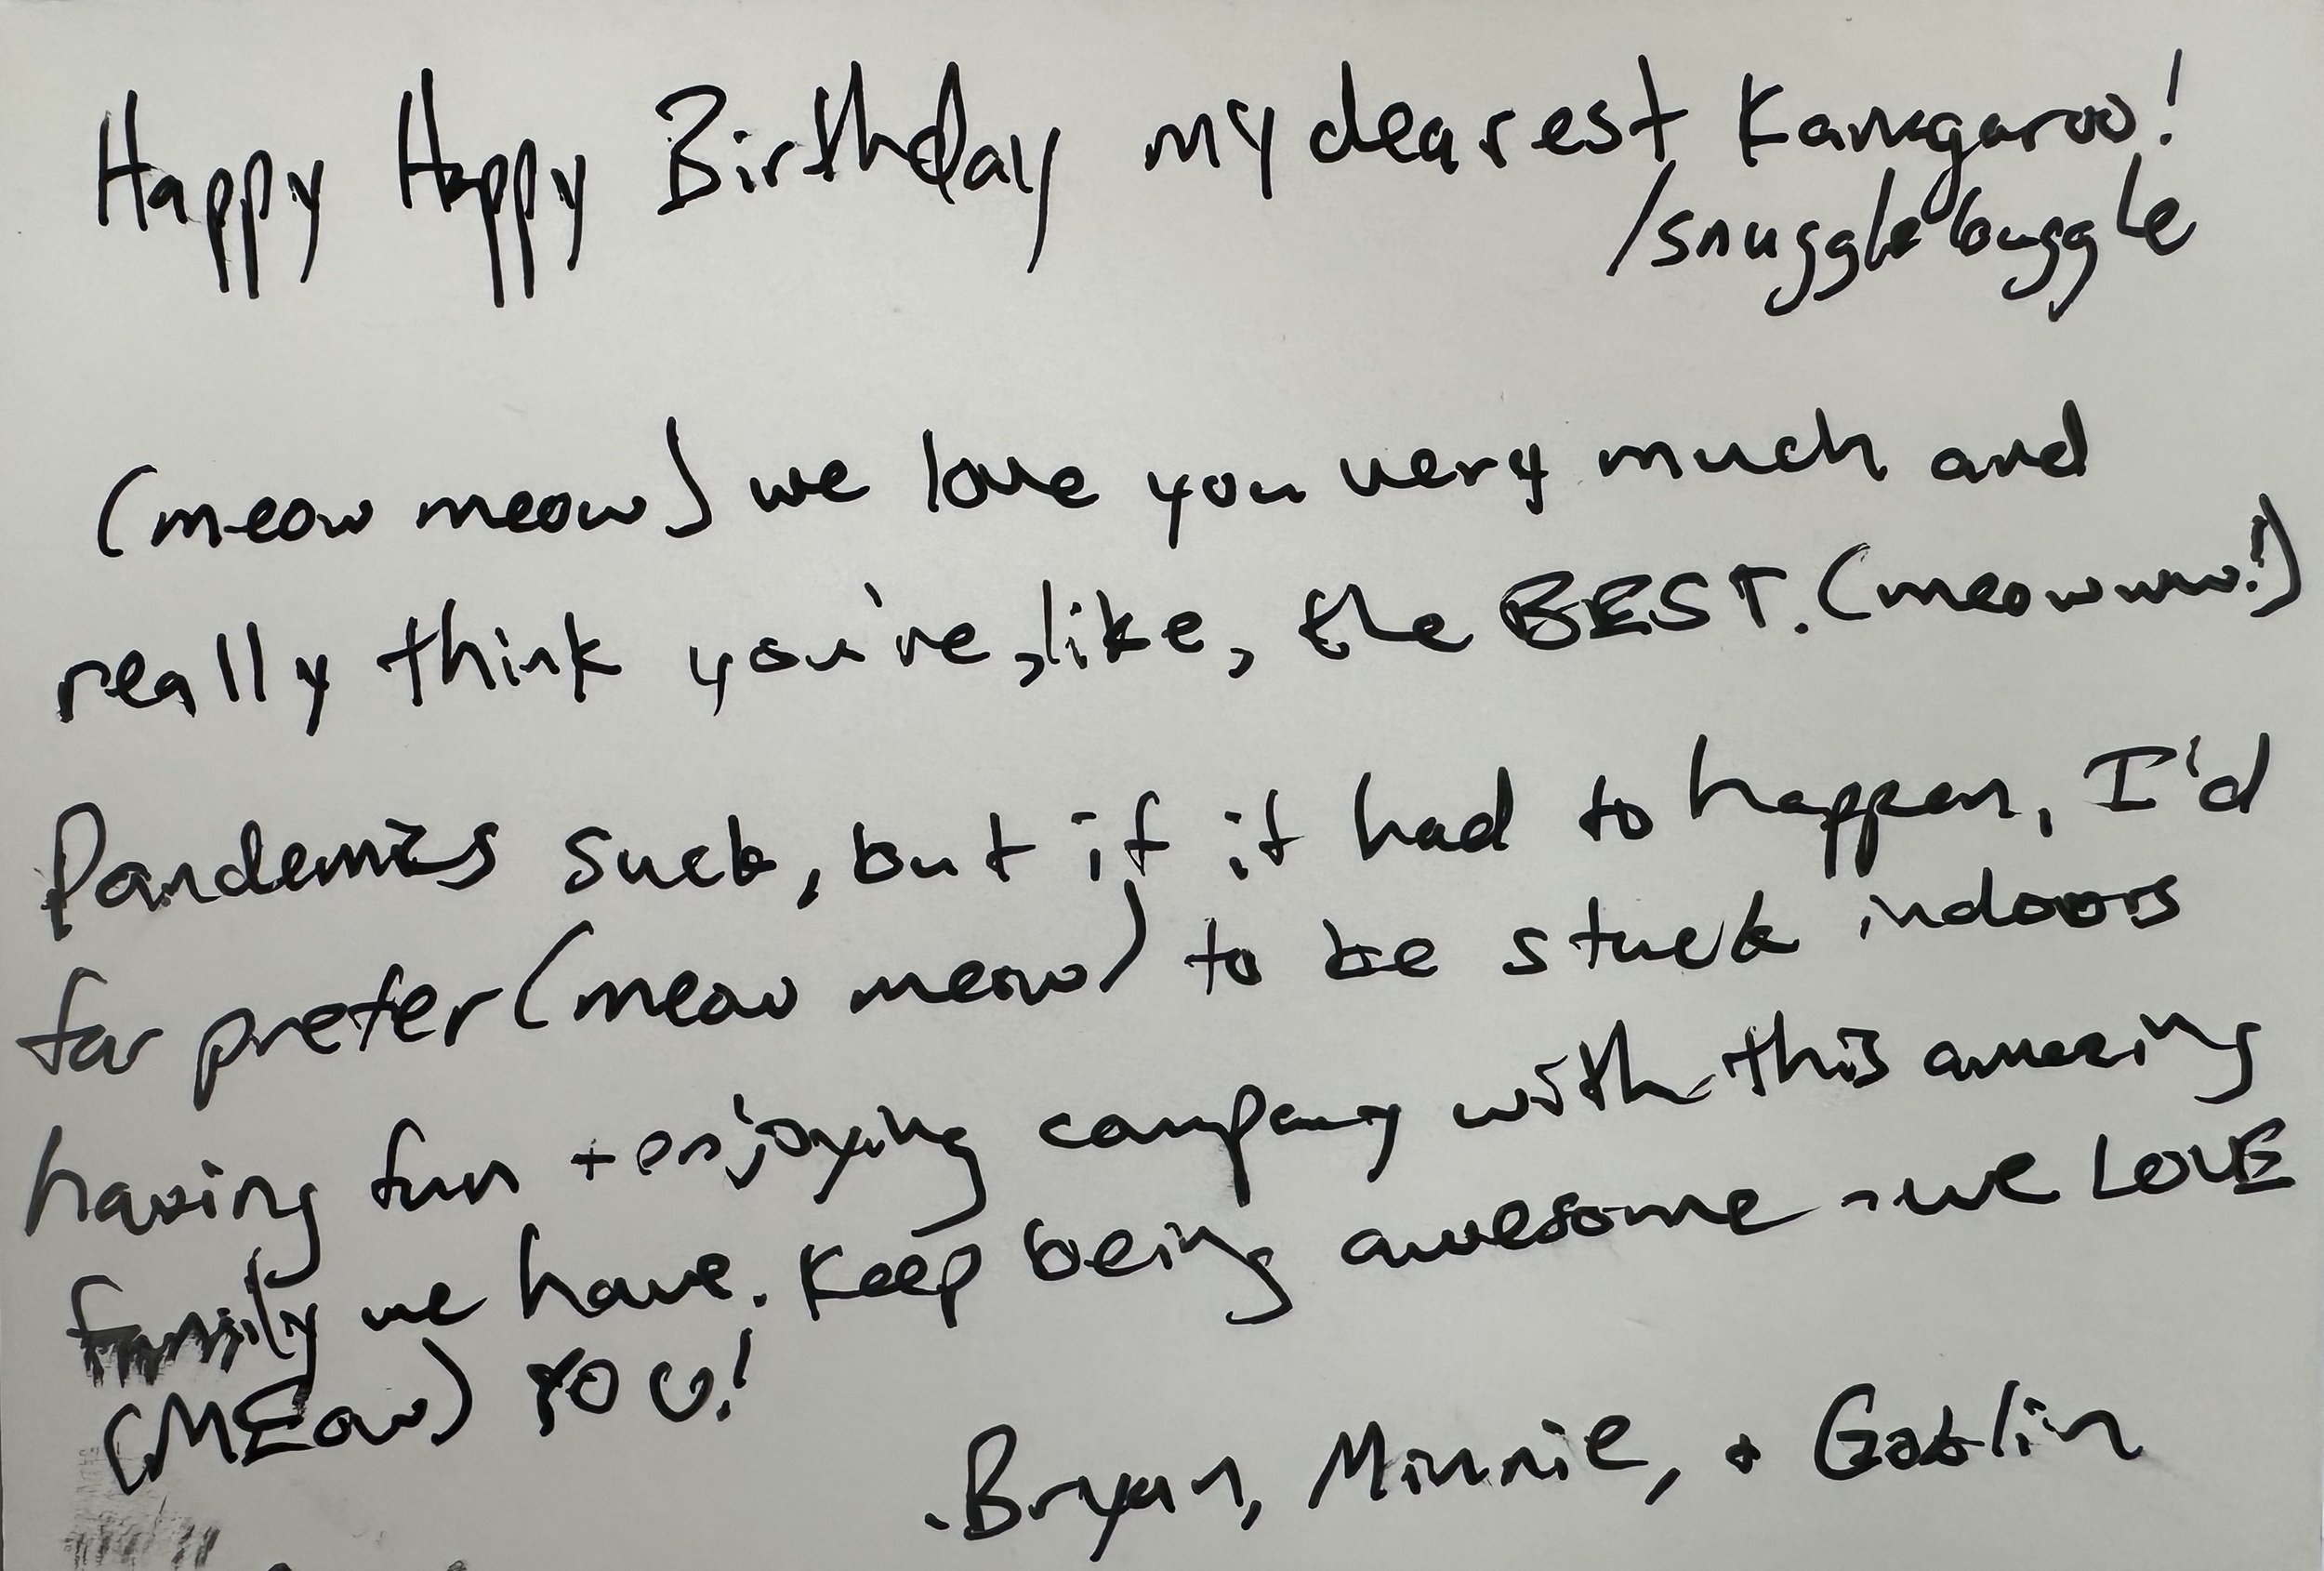 Happy Happy Birthday my dearest Kangaroo!
/snugglebuggle
(meow meow) we love you very much and
really think you're, like, the BEST. (meowww!)
Pandemics suck, but if it had to happen, I'd
far prefer (meow meow) to be stuck indoors
having fun + enjoying company with this amazing
family we have. Keep being awesome - we LOVE
(MEow) YOU!
- Bryan, Minnie, + Goblin